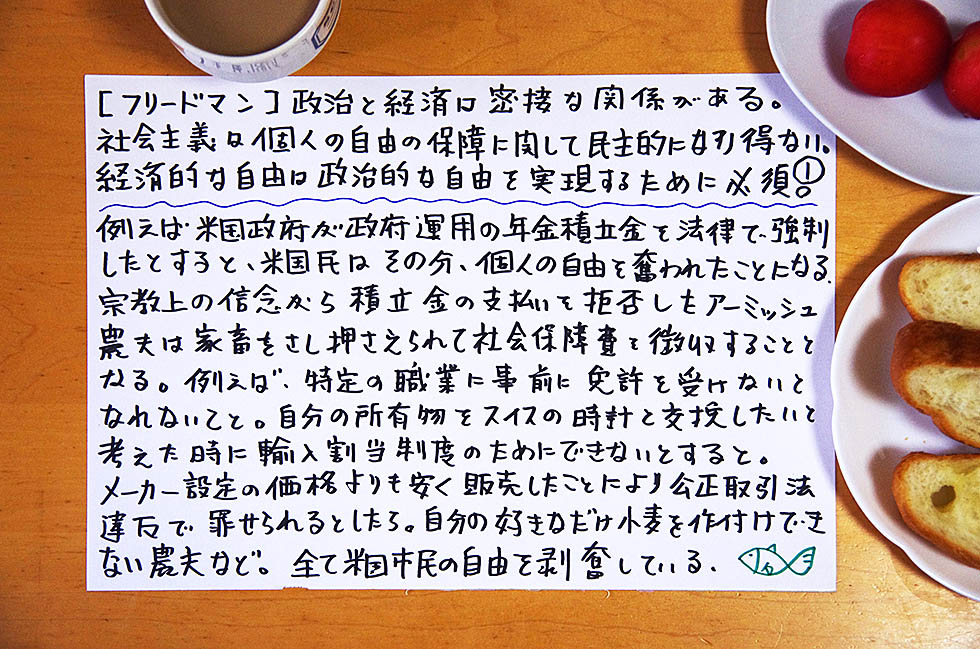 [フリードマン]政治と経済は密接な関係がある。
社会主義は個人の自由の保障に関して民主的になり得ない。
経済的な自由は政治的な自由を実現するために必須!
例えば米国政府が政府運用の年金積立金を法律で強制
したとすると、米国民はその分、個人の自由を奪われたことになる。
宗教上の信念から積立金の支払いを拒否したアーミッシュ
農夫は家畜をさし押さえられて社会保障費を徴収することと
なる。例えば、特定の職業に事前に免許を受けないと
なれないこと。自分の所有物をスイスの時計と交換したいと
考えた時に輸入割当制度のためにできないとすると。
メーカー設定の価格よりも安く販売したことにより公正取引法
違反で罪せられるとしたら。自分の好きなだけ小麦を作付けでき
ない農夫など。全て米国市民の自由を剥奪している、